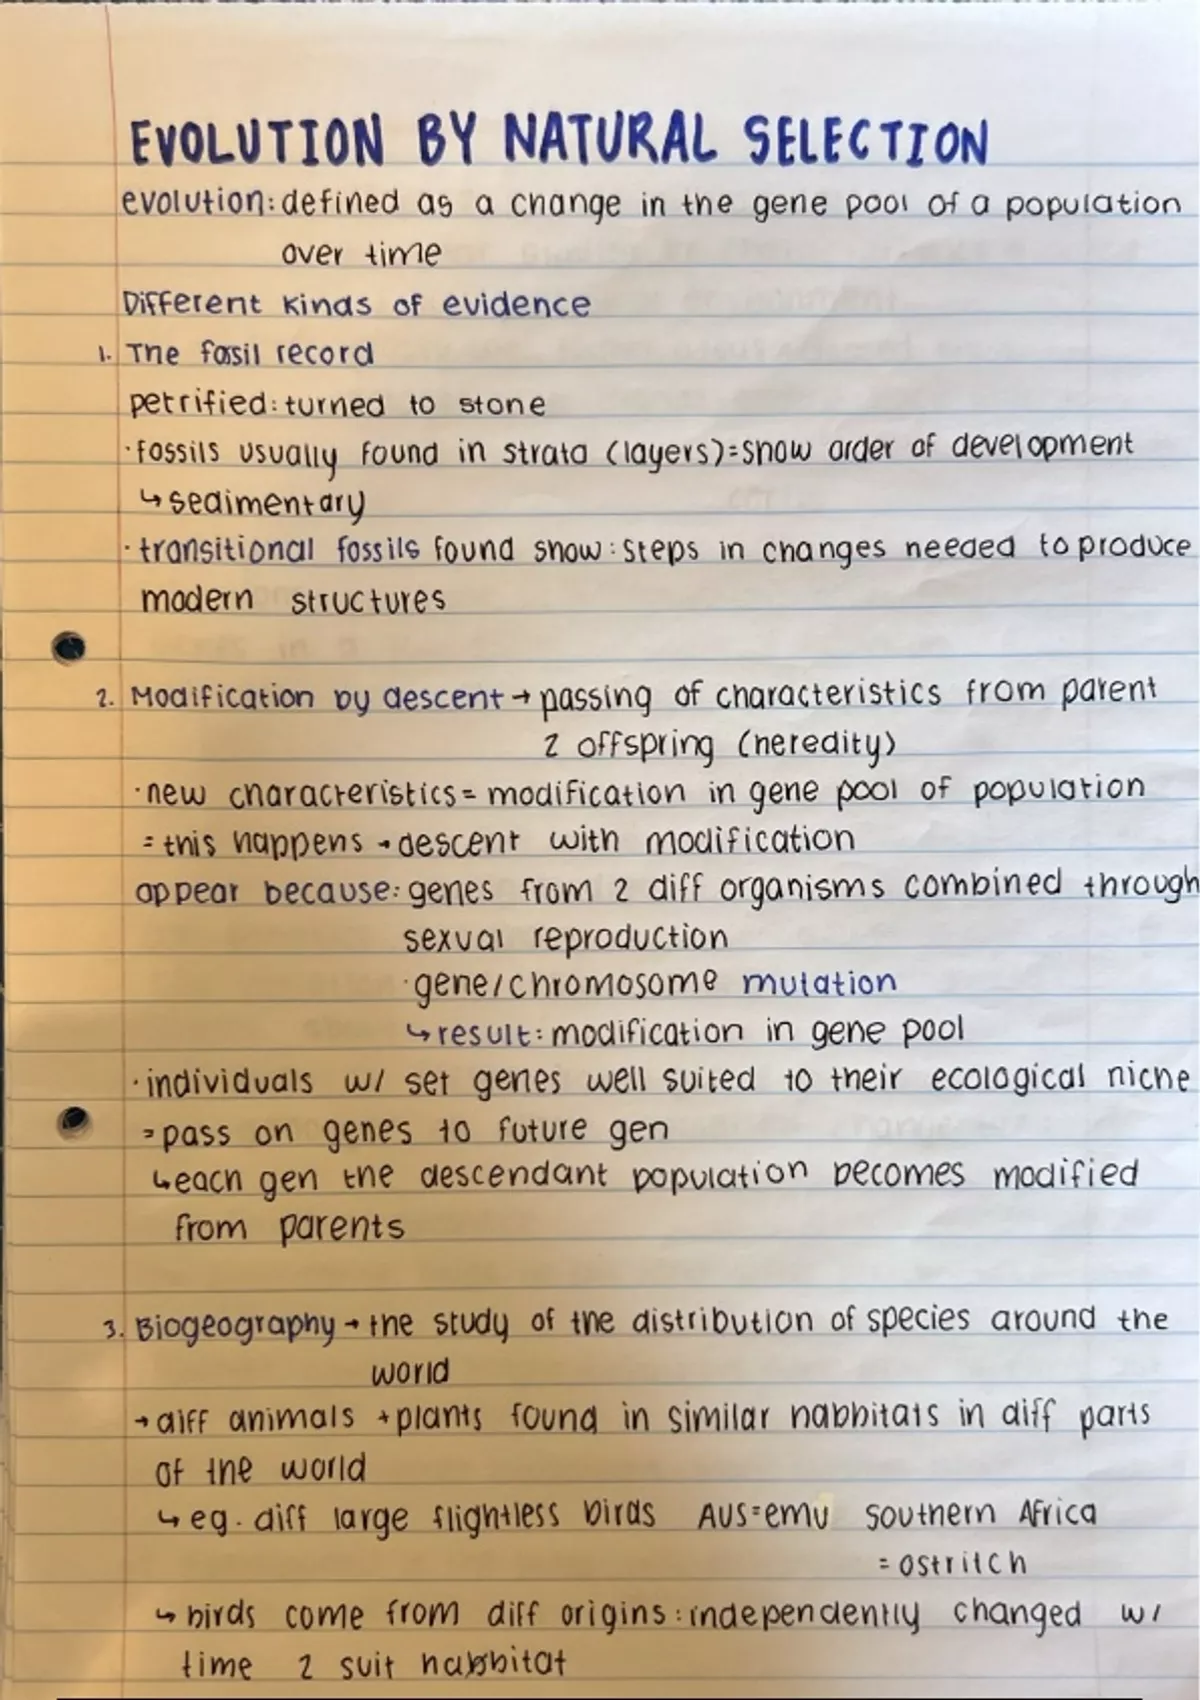 EVOLUTION BY NATURAL SELECTION
evolution: defined as a change in the gene pool of a population
over time
Different kinds of evidence
1. The fossil record
petrified: turned to stone
· fossils usually found in strata (layers) = show order of development
↳ sedimentary
· transitional fossils found show: steps in changes needed to produce
modern structures
2. Modification by descent → passing of characteristics from parent
2 offspring (heredity)
· new characteristics = modification in gene pool of population
= this happens → descent with modification
appear because: genes from 2 diff organisms combined through
sexual reproduction
· gene/chromosome mutation
↳ result: modification in gene pool
· individuals w/ set genes well suited to their ecological niche
= pass on genes to future gen
↳ each gen the descendant population becomes modified
from parents
3. Biogeography → the study of the distribution of species around the
world
→ diff animals + plants found in similar habbitats in diff parts
of the world
↳ eg. diff large flightless birds AUS = emu southern Africa
= ostritch
↳ birds come from diff origins: independently changed w/
time 2 suit habbitat